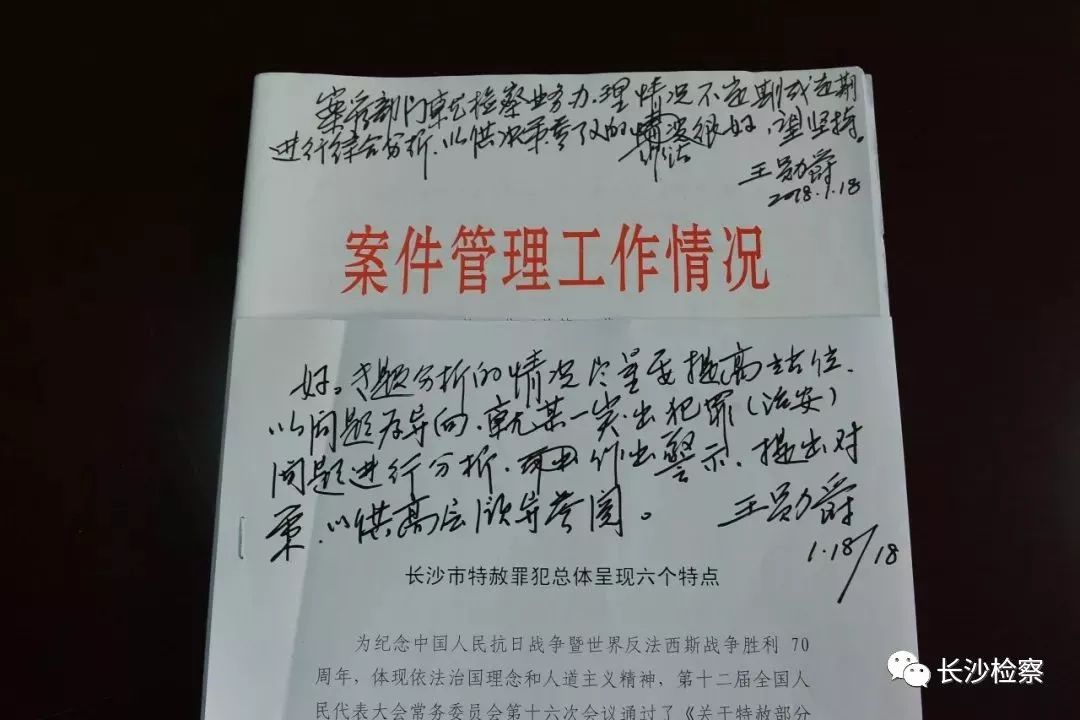 案管部门就检察业务办理情况不定期或定期
进行综合分析,以供决策参考的做法很好,望坚持。
王勋爵
2018.1.18
案件管理工作情况
好。专题分析的情况尽量要提高站位,
以问题为导向,就某一突出犯罪(治安)
问题进行分析,作出警示,提出对
策,以供高层领导参阅。
王勋爵
1.18/18
长沙市特赦罪犯总体呈现六个特点
为纪念中国人民抗日战争暨世界反法西斯战争胜利 70
周年,体现依法治国理念和人道主义精神,第十二届全国人
民代表大会常务委员会第十六次会议通过了《关于特赦部分
长沙检察